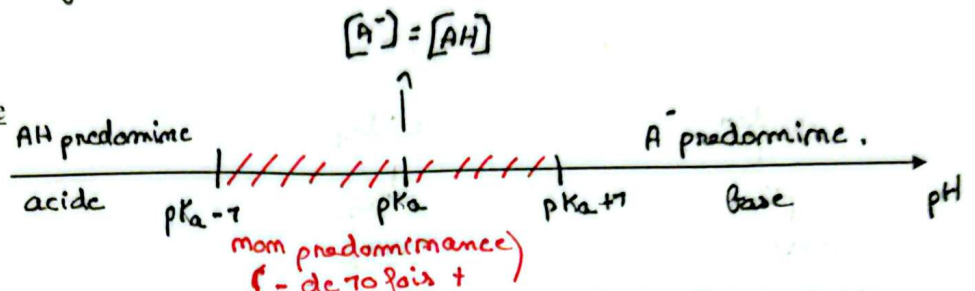 [A⁻] = [AH]
AH predomine
A⁻ predomine.
acide
pKa-1
pKa
pKa+1
base
pH
non predominance)
(- de 10 fois +